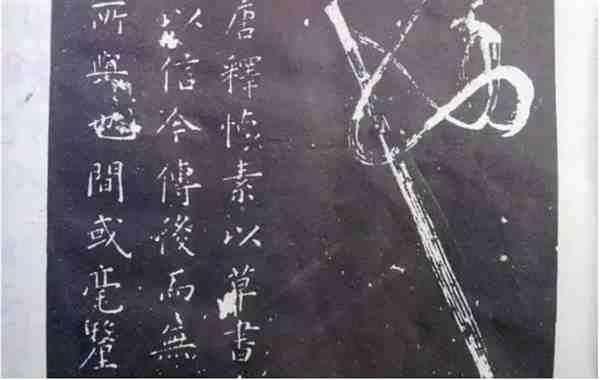 唐釋懷素以草書
以信今傳後而無
所與也間或毫釐